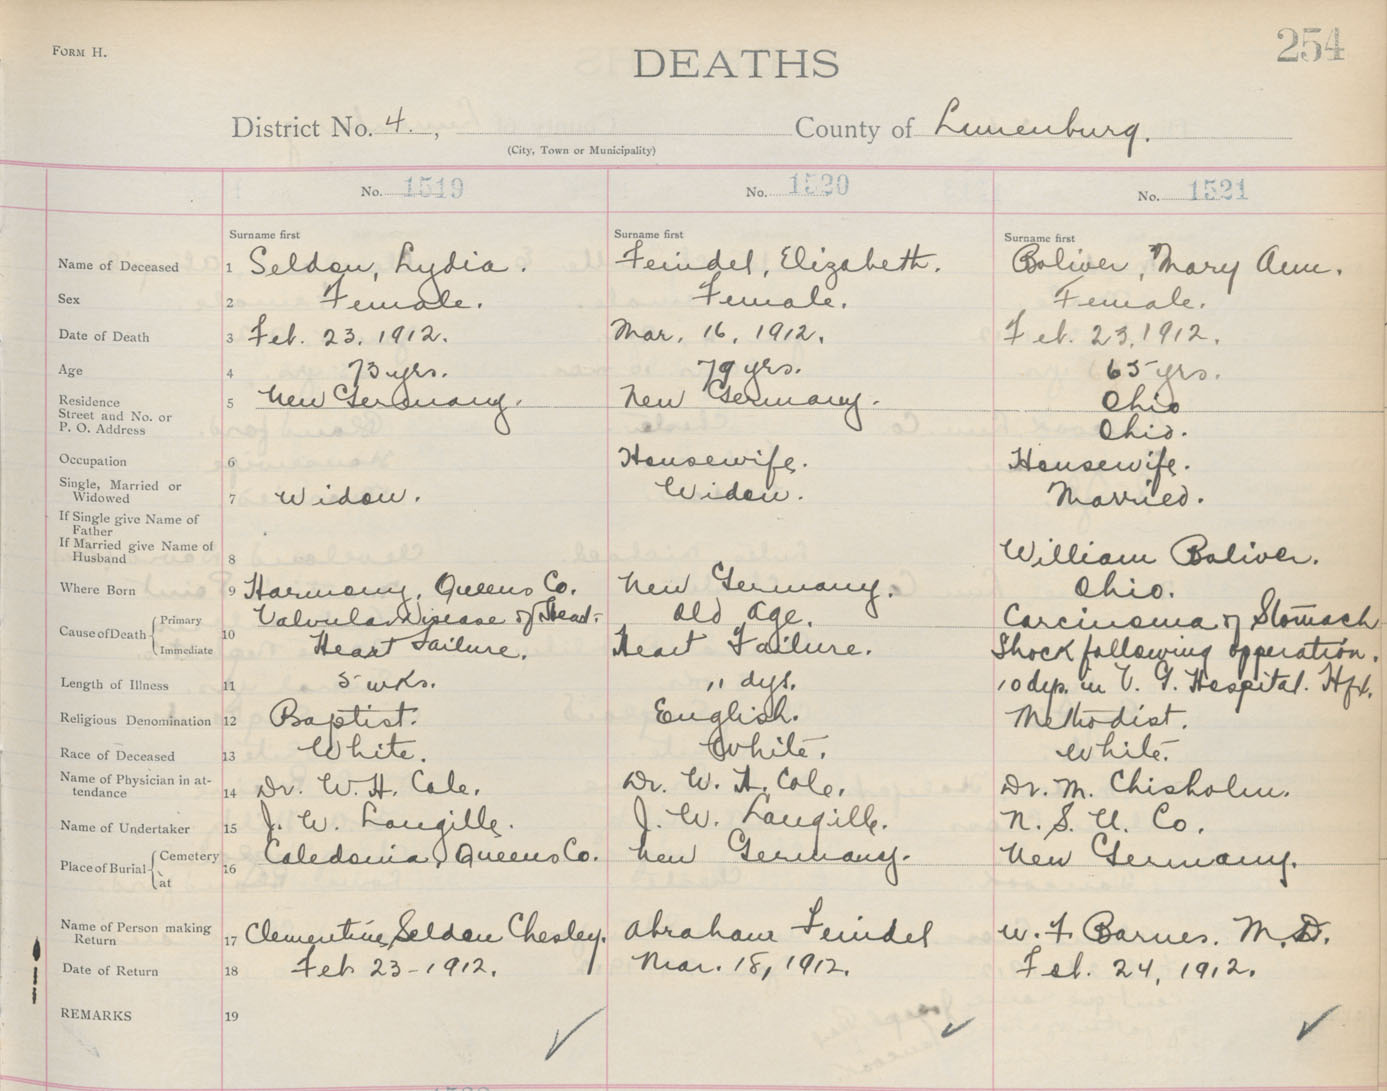 254
FORM H.
DEATHS
District No. 4. , County of Lunenburg.
(City, Town or Municipality)
No. 1519 No. 1520 No. 1521
Surname first Surname first Surname first
Name of Deceased 1 Seldon, Lydia. Feindel, Elizabeth. Boliver, Mary Ann.
Sex 2 Female. Female. Female.
Date of Death 3 Feb. 23, 1912. Mar. 16, 1912. Feb. 23, 1912.
Age 4 73 yrs. 79 yrs. 65 yrs.
Residence 5 New Germany. New Germany. Ohio
Street and No. or
P. O. Address Ohio.
Occupation 6 Housewife. Housewife.
Single, Married or
Widowed 7 Widow. Widow. Married.
If Single give Name of
Father
If Married give Name of
Husband 8 William Boliver.
Where Born 9 Harmony, Queens Co. New Germany. Ohio.
Cause of Death Primary Valvular Disease of Heart. Old Age. Carcinoma of Stomach
10 Immediate Heart Failure. Heart Failure. Shock following opperation.
Length of Illness 11 5 wks. 11 dys. 10 dys. in V. G. Hospital. Hfx.
Religious Denomination 12 Baptist. English. Methodist.
Race of Deceased 13 White. White. White.
Name of Physician in at-
tendance 14 Dr. W. H. Cole. Dr. W. H. Cole. Dr. M. Chisholm.
Name of Undertaker 15 J. W. Langille. J. W. Langille. N. S. U. Co.
Place of Burial Cemetery 16 Caledonia, Queens Co. New Germany. New Germany.
at
Name of Person making
Return 17 Clementine Seldon Chesley. Abraham Feindel W. F. Barnes. M.D.
Date of Return 18 Feb 23-1912. Mar. 18, 1912. Feb. 24, 1912.
REMARKS 19